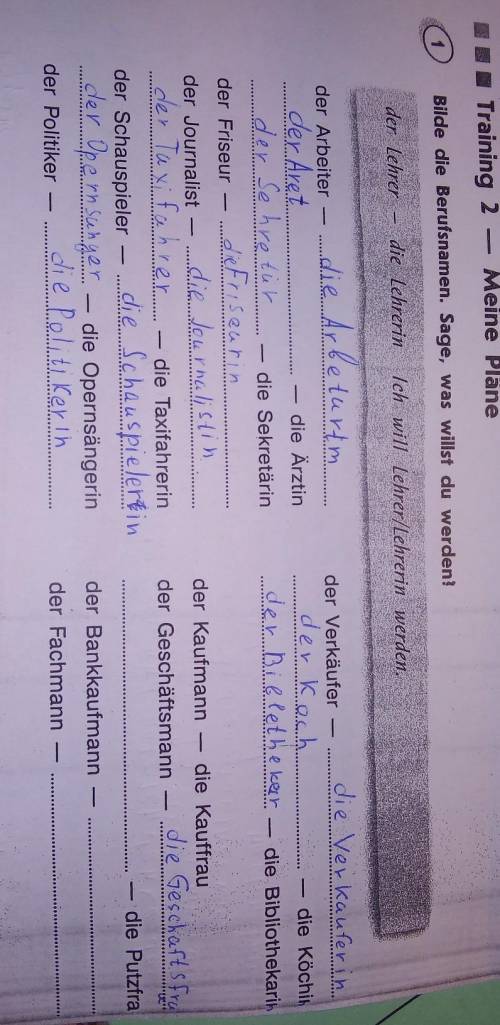 Training 2 — Meine Pläne
1 Bilde die Berufsnamen. Sage, was willst du werden?
der Lehrer – die Lehrerin Ich will Lehrer/Lehrerin werden.
der Arbeiter — die Arbeturtm
der Aret — die Ärztin
der Sekretür — die Sekretärin
der Friseur — die Friseurin
der Journalist — die Journalistin
der Taxifahrer — die Taxifahrerin
der Schauspieler — die Schauspielerin
der Opernsänger — die Opernsängerin
der Politiker — die Politikerin
der Verkäufer — die Verkauferin
der Koch — die Köchin
der Bibletheker — die Bibliothekarin
der Kaufmann — die Kauffrau
der Geschäftsmann — die Geschaftsfrau
— die Putzfra
der Bankkaufmann —
der Fachmann —